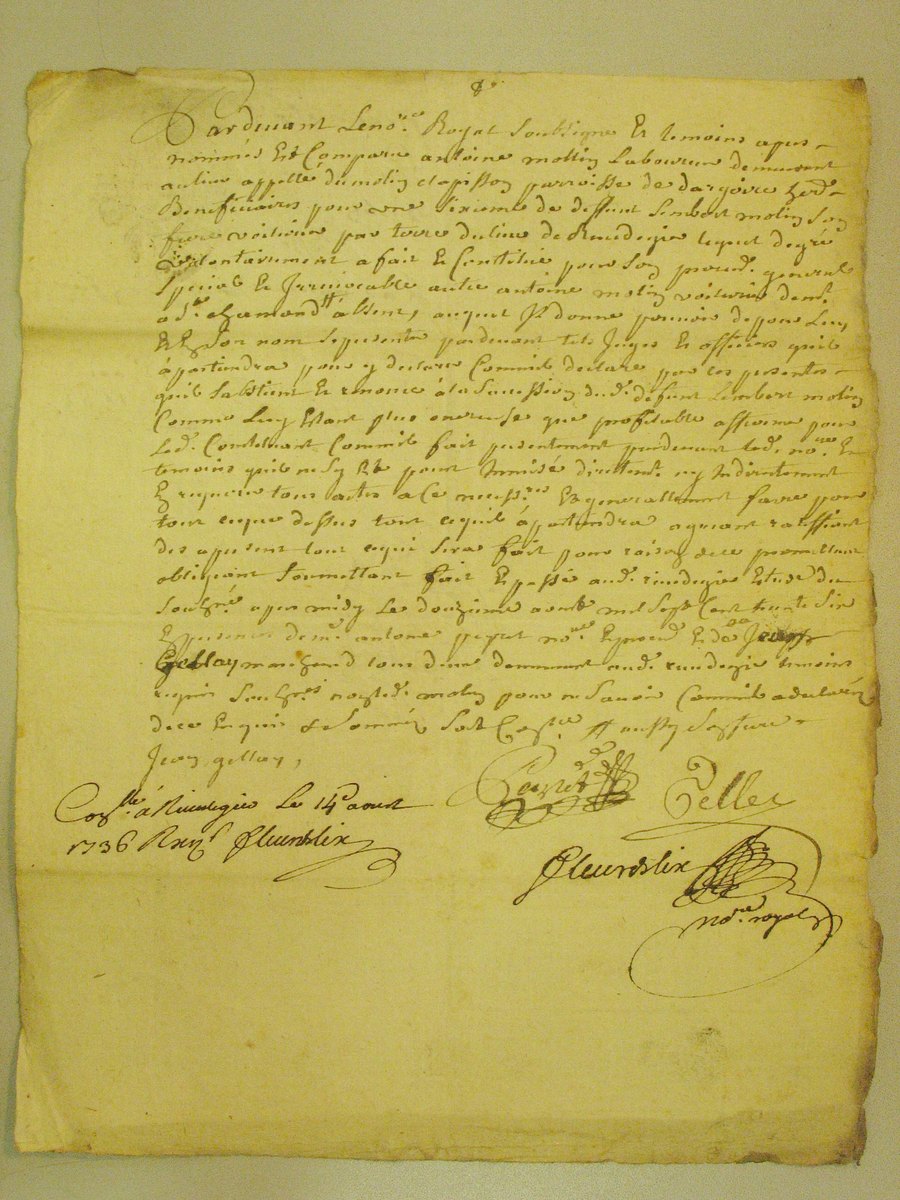 Pardevant Lenore. Royal Soubsigné Et temoins apres
nommés Est Comparu antoine mollin Laboureur demeurant
au lieu appellé du molin clapisson parroisse de dargoire herer
Beneficiaires pour une sixieme de deffunt Limbert molin son
frere voiturier par terre du lieu de Rivedegie lequel de gré
volontairement a fait Et Constitué pour son procur. general
special Et Irrevocable autre antoine molin voiturier demt.
a St. chamond absent, auquel Il donne pouvoir de pour Luy
Et En son nom se presenter pardevant tels Juges Et officiers quil
apartiendra pour y declarer Comme il declare par ces presentes
quil sabstient Et renonce a la Succession dud. deffunt Limbert molin
Comme Luy Estant plus onereuse que profitable affirmer pour
Led. Constituant Comme il fait presentement pardevant led. nore. Et
temoins quil ne sy Est point Immisé directemt. ny Indirectement
En requerir tous actes a Ce necessres. Et generallement faire pour
tout ce que dessus tout ce quil apartiendra agreant ratiffiant
des apresent tout ce qui sera fait pour raison de ce promettant
obligeant Soumettant fait Et passé aud. rivedegie Etude du
Soubsné apres midy Le douzieme aoust mil Sept Cent trente Six
En presence de me. antoine peyret nore. Et procur. Et de Jean
Gellay marchand tous deux demeurant aud. rivedegie temoins
requis Soubsnés non led. molin pour ne Savoir Comme il a declaré
de ce Enquis & Sommé Soit Conlle
Jean gellay,
Peyret Pellet
Conllé. á Rivedegie Le 14e aoust
1736 Fleurdelix
Fleurdelix
Nore. royal